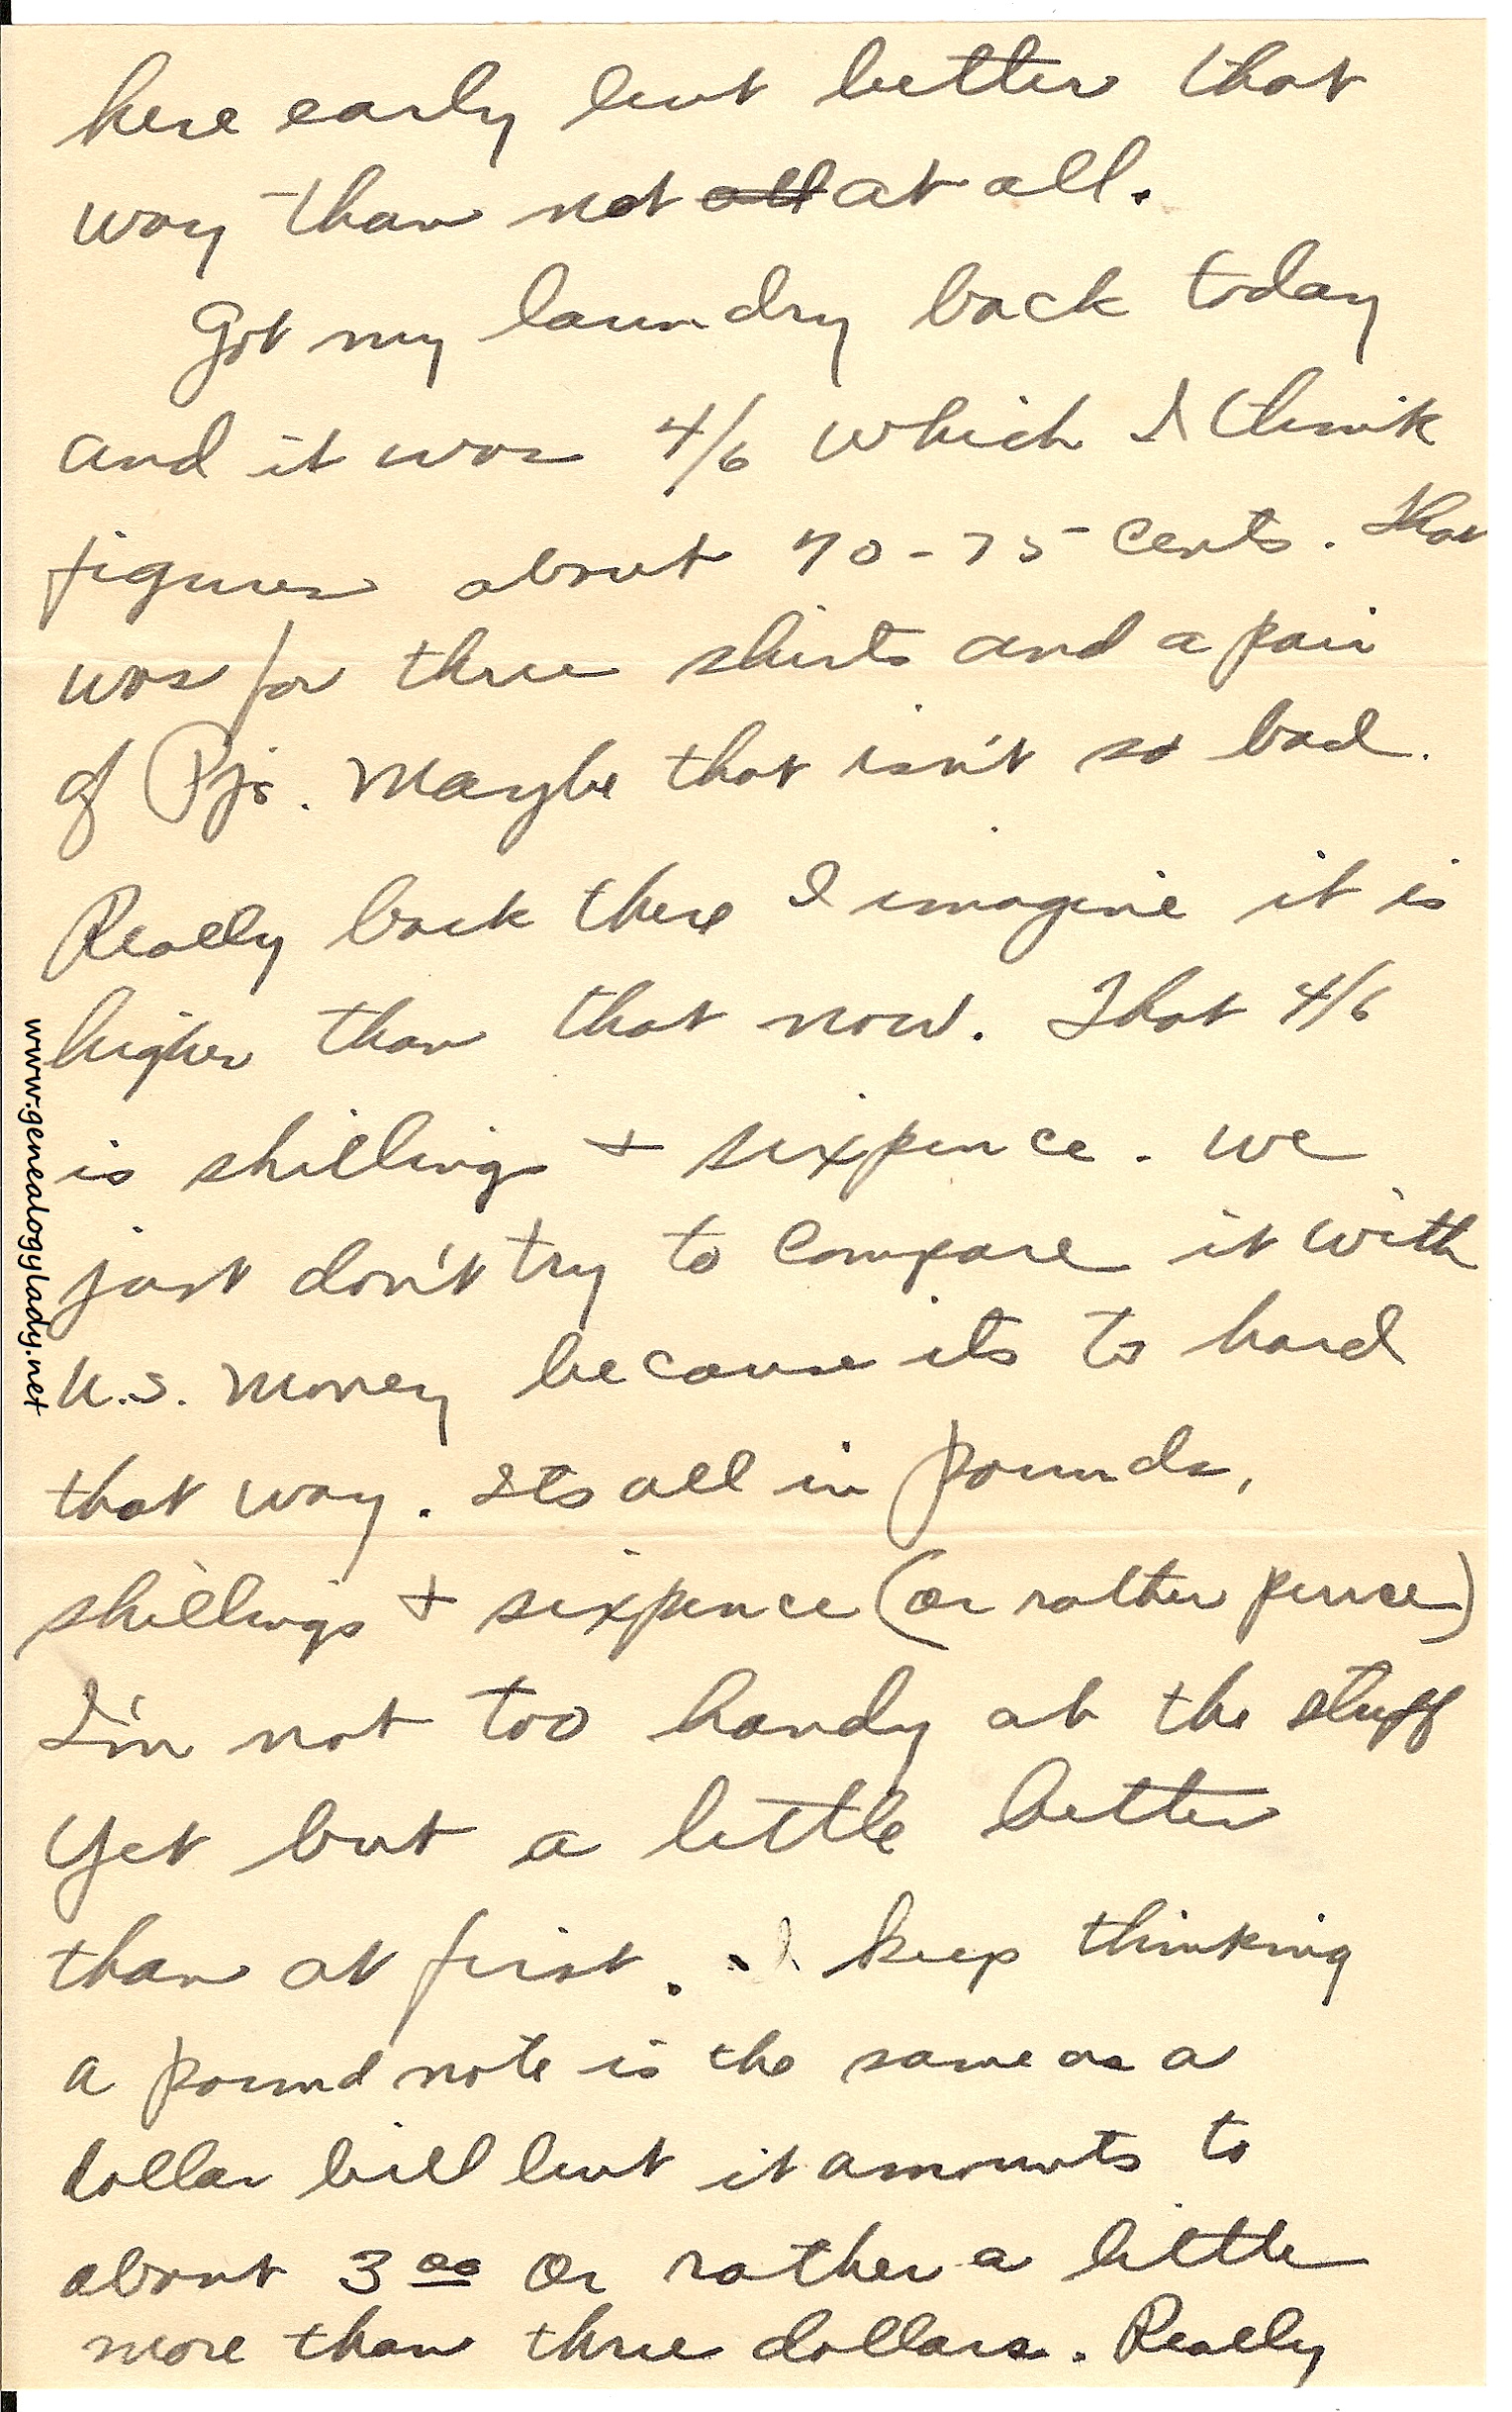 here early but better that
way than not all at all.
Got my laundry back today
and it was 4/6 which I think
figures about 70-75 cents. That
was for three shirts and a pair
of Pjs. Maybe that isn't so bad.
Really back there I imagine it is
higher than that now. That 4/6
is shillings + sixpence. We
just don't try to compare it with
U.S. money because its to hard
that way. Its all in pounds,
shillings + sixpence (or rather pence)
I'm not too handy at the stuff
yet but a little better
than at first. I keep thinking
a pound note is the same as a
dollar bill but it amounts to
about 3 00 or rather a little
more than three dollars. Really
www.genealogylady.net